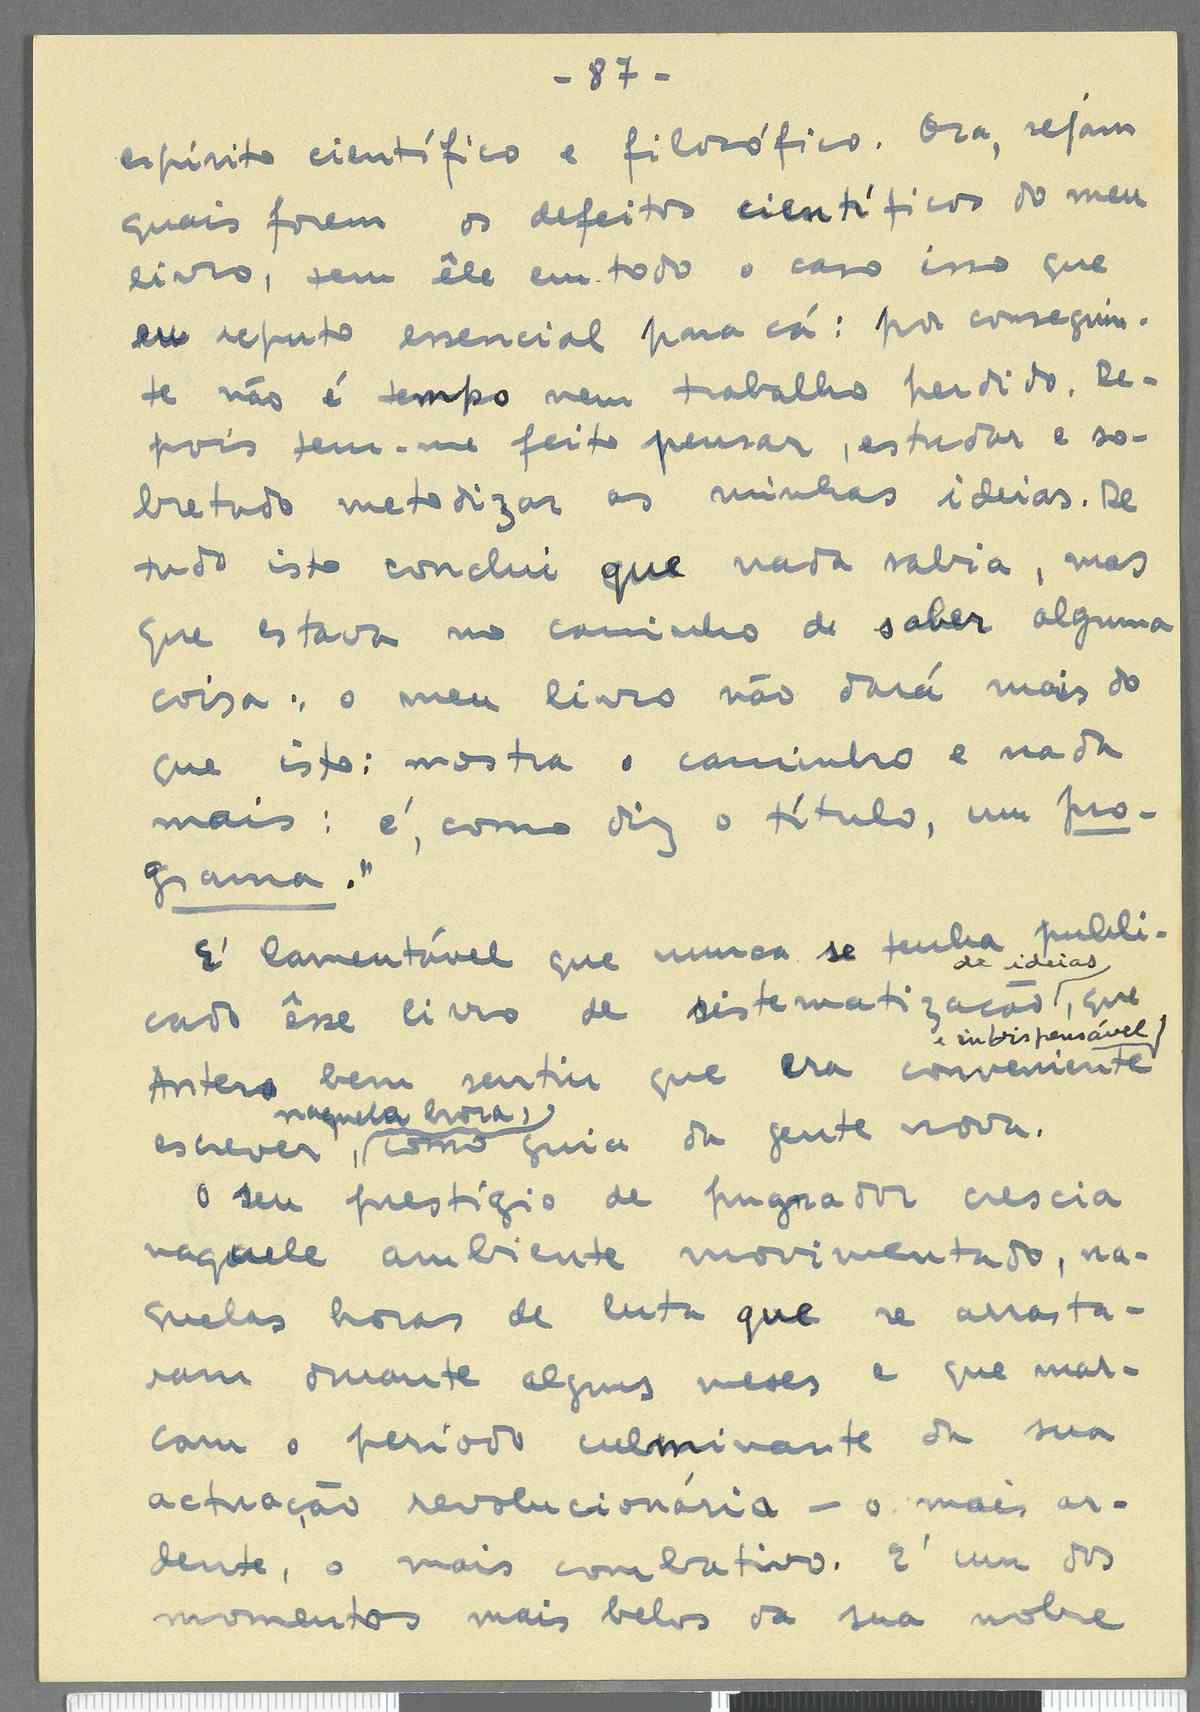 - 87 -
espírito científico e filosófico. Ora, sejam
quais forem os defeitos científicos do meu
livro, tem êle em todo o caso isso que
eu reputo essencial para cá: por conseguin-
te não é tempo nem trabalho perdido. De-
pois tem-me feito pensar, estudar e so-
bretudo metodizar as minhas ideias. De
tudo isto conclui que nada sabia, mas
que estava no caminho de saber alguma
coisa: o meu livro não dará mais do
que isto: mostra o caminho e nada
mais: é, como diz o título, um pro-
grama."
É lamentável que nunca se tenha publi-
de ideias
cado êsse livro de sistematização, que
e indispensável
Antero bem sentiu que era conveniente
naquela hora,
escrever, como guia da gente nova.
O seu prestígio de pugnador crescia
naquele ambiente movimentado, na-
quelas horas de luta que se arrasta-
ram durante alguns meses e que mar-
cam o período culminante da sua
actuação revolucionária — o mais ar-
dente, o mais combativo. É um dos
momentos mais belos da sua nobre